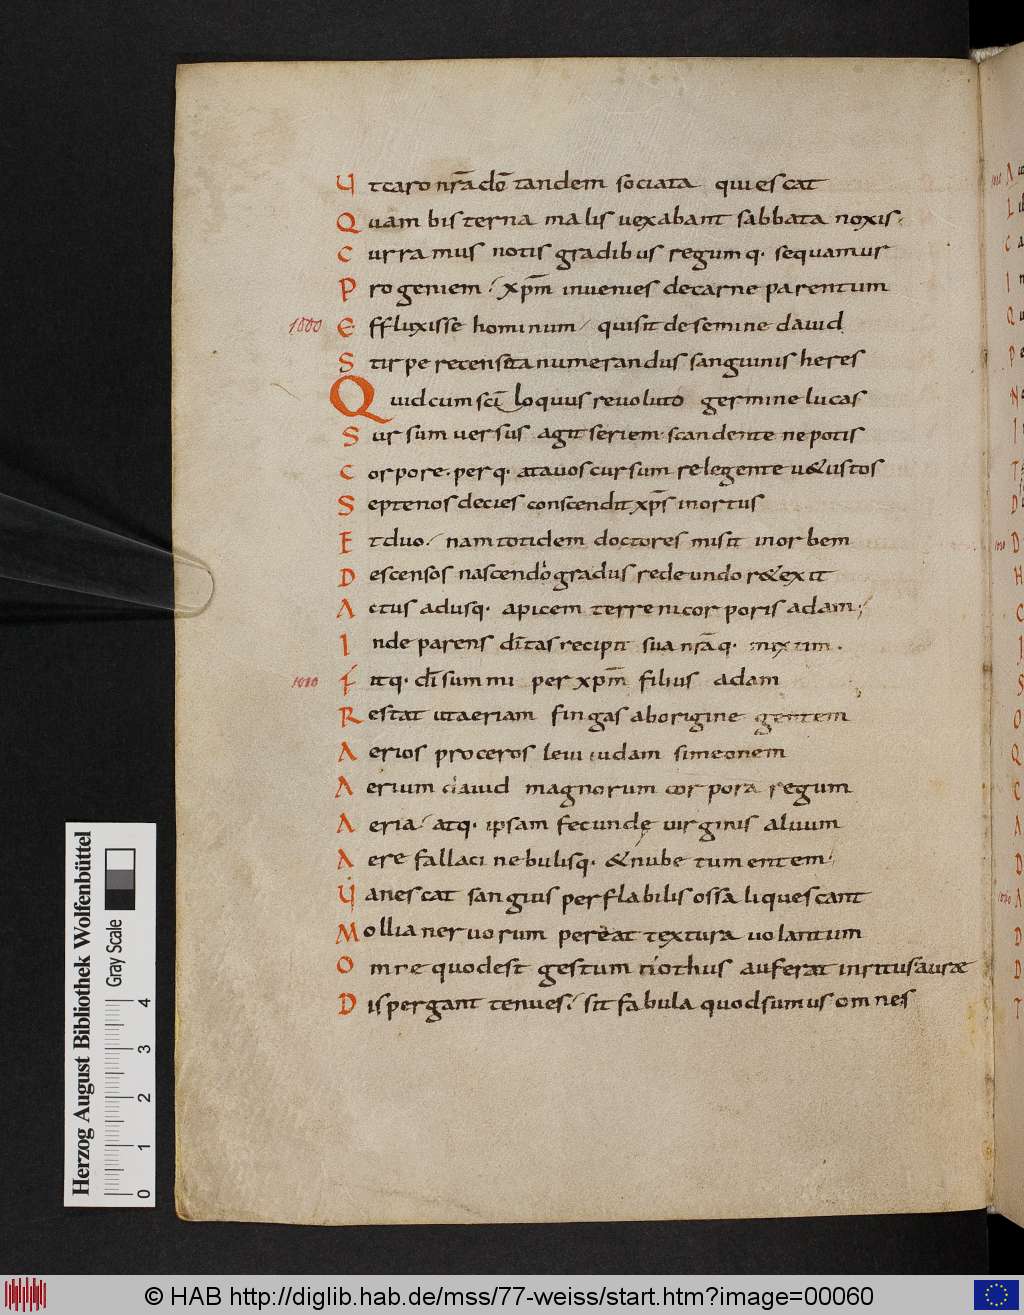 Ut caro nr̄a dō tandem sociata quiescat
Quam bis terna malis uexabant sabbata noxis.
Curramus notis gradibus regumq· sequamur
Progeniem xp̄m inuenies de carne parentum
1000 Effluxisse hominum quisit de semine dauid
Stirpe recensita numerandus sanguinis heres
Quid cum scī loquus reuoluto germine lucas
Sursum uersus agit seriem scandente nepotis
Corpore. perq· atauos cursum relegente u&ustos
Septenos decies conscendit xp̄s in ortus
Et duo. nam totidem doctores misit in orbem
Descensos nascendo gradus redeundo r&exit
Actus adusq· apicem terreni corporis adam;
Inde parens dītas recipit sua nr̄aq· mixtim.
1010 Fitq· dī summi per xp̄m filius adam
Restat ut aeriam fingas ab origine gentem
Aerios proceros leui iudam simeonem
Aerium dauid magnorum corpora regum
Aeria atq· ipsam fecunde uirginis aluum
Aere fallaci nebulisq· & nube tumentem
Uanescat sanguis perflabilis ossa liquescant
Mollia neruorum pereat textura uolantum
Omre quod est gestum nothus auferat inritus auræ
Dispergant tenues. sit fabula quod sumus omnes
Herzog August Bibliothek Wolfenbüttel
Gray Scale
0 1 2 3 4
© HAB http://diglib.hab.de/mss/77-weiss/start.htm?image=00060